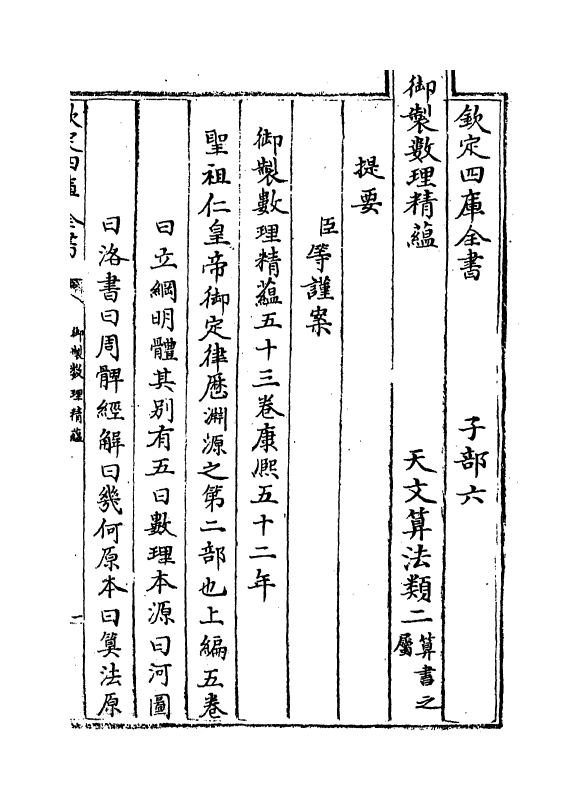 欽定四庫全書　子部六
御製數理精藴　天文算法類二算書之屬
提要
臣等謹案
御製數理精藴五十三卷康熙五十二年
聖祖仁皇帝御定律厯淵源之第二部也上編五卷
曰立綱明體其别有五曰數理本源曰河圖
曰洛書曰周髀經解曰㡬何原本曰算法原
欽定四庫全書
御製數理精藴
一